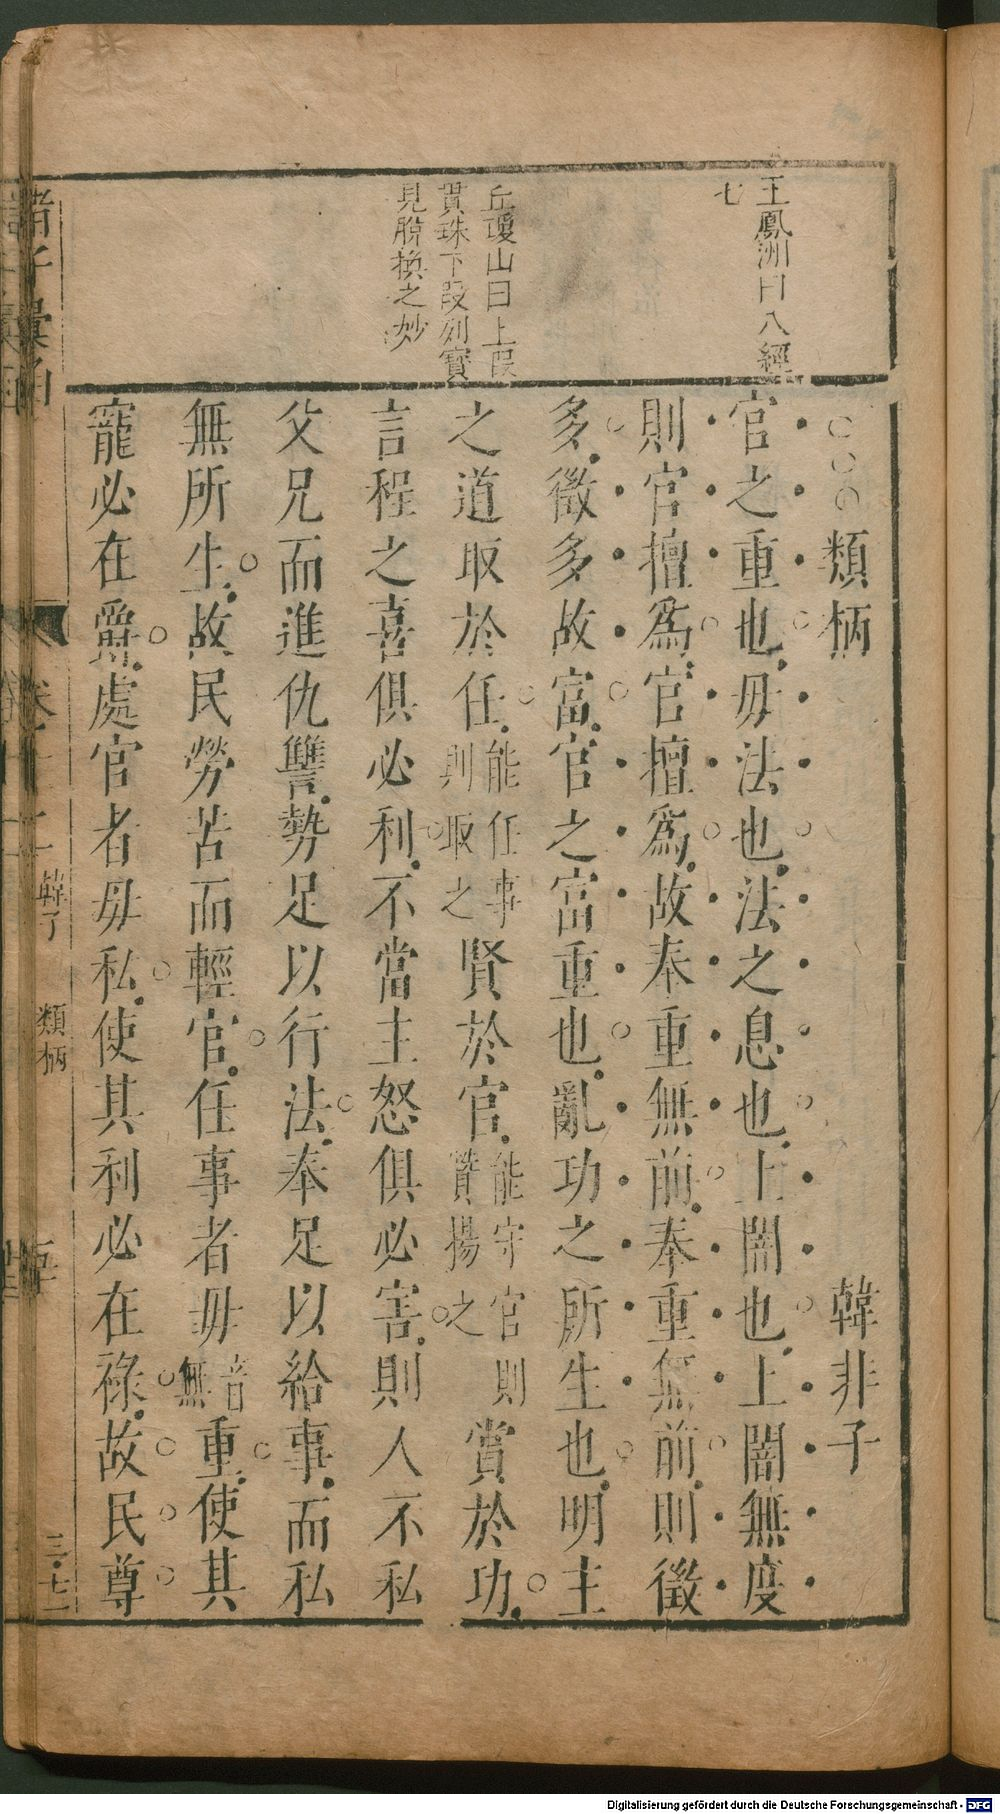 王鳳洲曰八經
七
丘瓊山曰上段
貫珠下段列寶
見脫換之妙
○○○類柄 韓非子
官之重也毋法也法之息也上闇也上闇無度
則官擅爲官擅爲故奉重無前奉重無前則徵
多徵多故富官之富重也亂功之所生也明主
之道取於任能任事則取之賢於官能守官則贊揚之賞於功
言程之喜俱必利不當主怒俱必害則人不私
父兄而進仇讐勢足以行法奉足以給事而私
無所生故民勞苦而輕官任事者毋音無重使其
寵必在爵處官者毋私使其利必在祿故民尊
諸子彙函
韓子 類柄
Digitalisierung gefördert durch die Deutsche Forschungsgemeinschaft - DFG